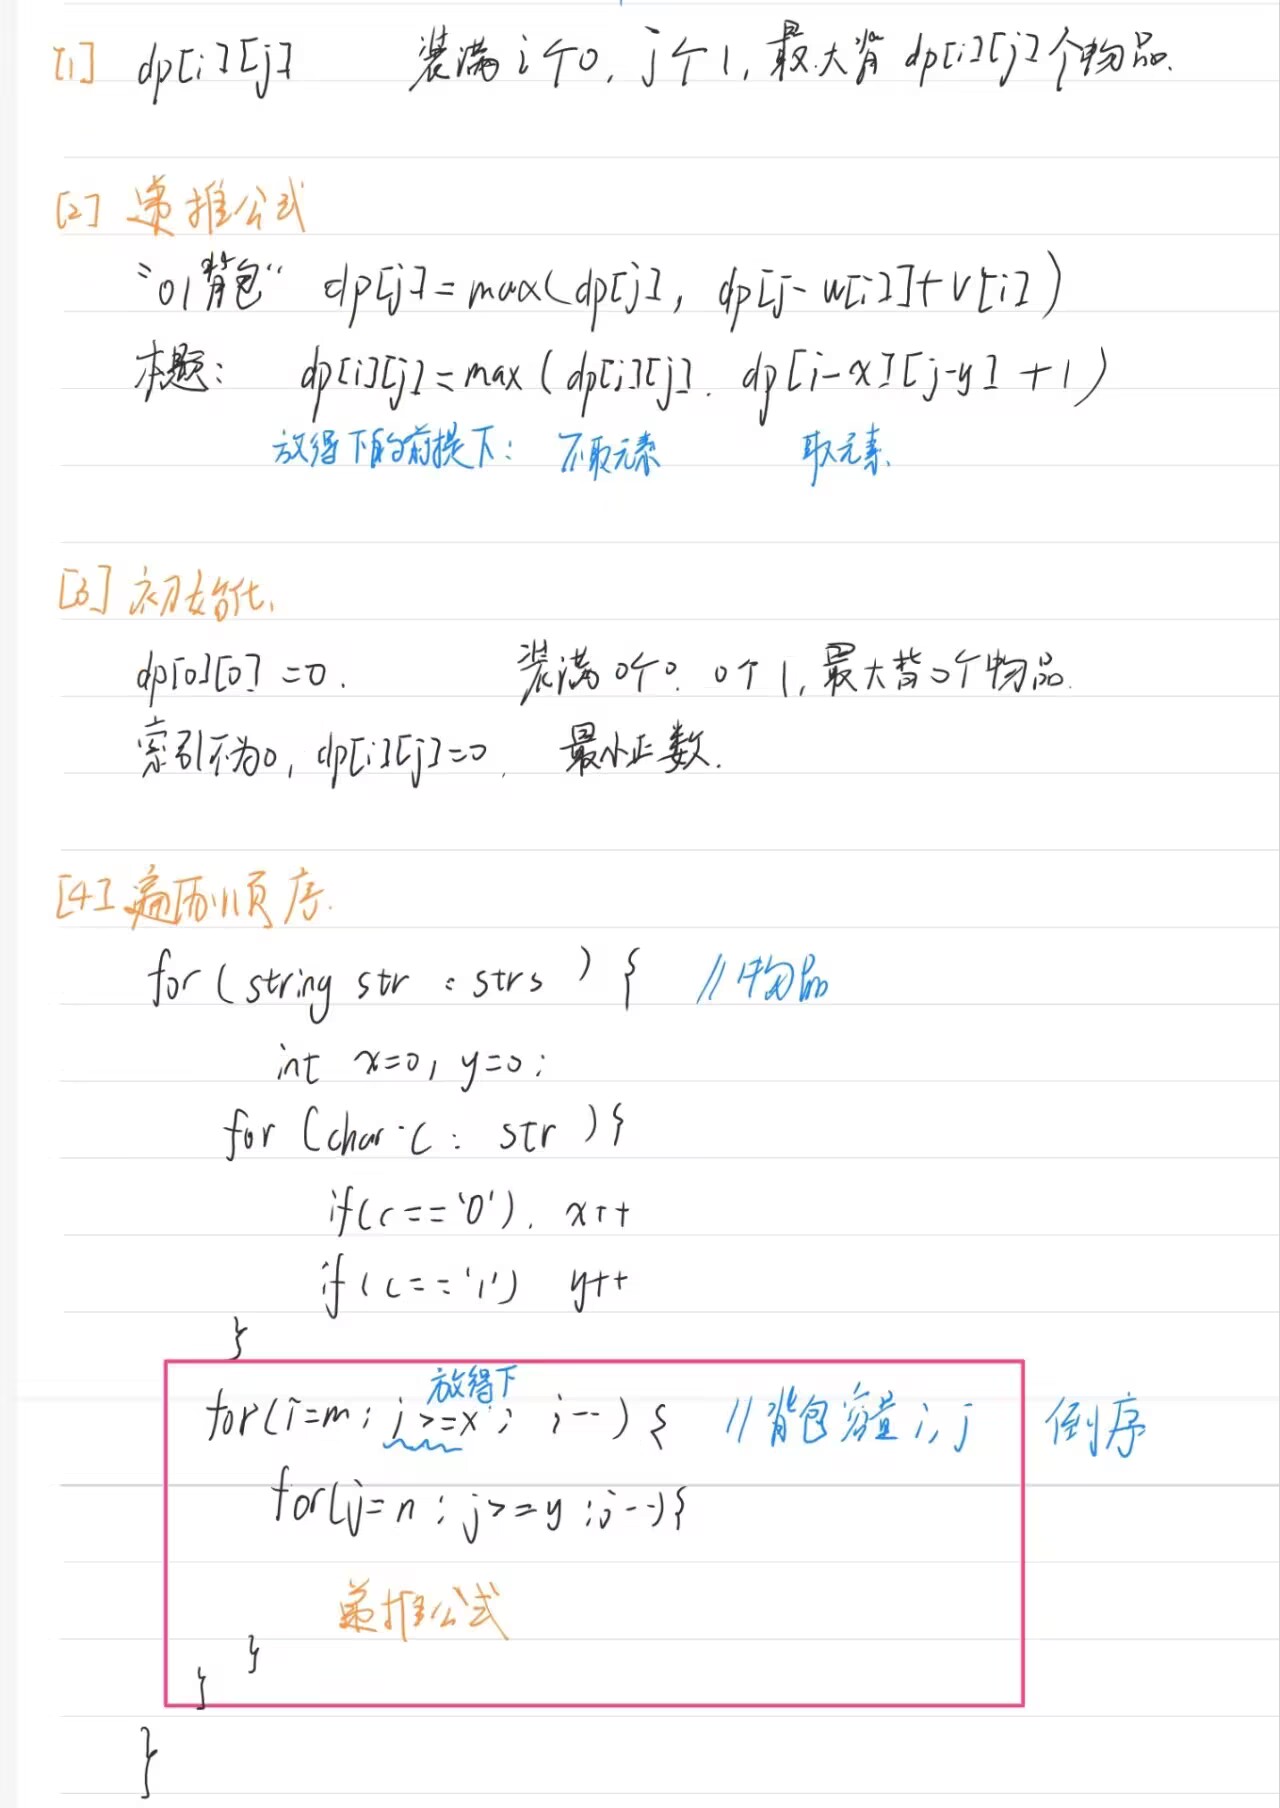 [1] dp[i][j] 装满i个0, j个1, 最大背dp[i][j]个物品.
[2] 递推公式
"01背包" dp[j]=max(dp[j], dp[j-w[i]]+v[i])
本题: dp[i][j]=max(dp[i][j]. dp[i-x][j-y]+1)
放得下的前提下: 不取元素 取元素.
[3] 初始化.
dp[0][0]=0. 装满0个0. 0个1, 最大背0个物品.
索引不为0, dp[i][j]=0, 最小正数.
[4] 遍历顺序.
for(string str : strs) { //物品
int x=0, y=0;
for (char c: str){
if(c=='0'). x++
if(c=='1') y++
}
放得下
for(i=m; j>=x; i--){ //背包容量i,j 倒序
for(j=n; j>=y; j--){
递推公式
}
}
}